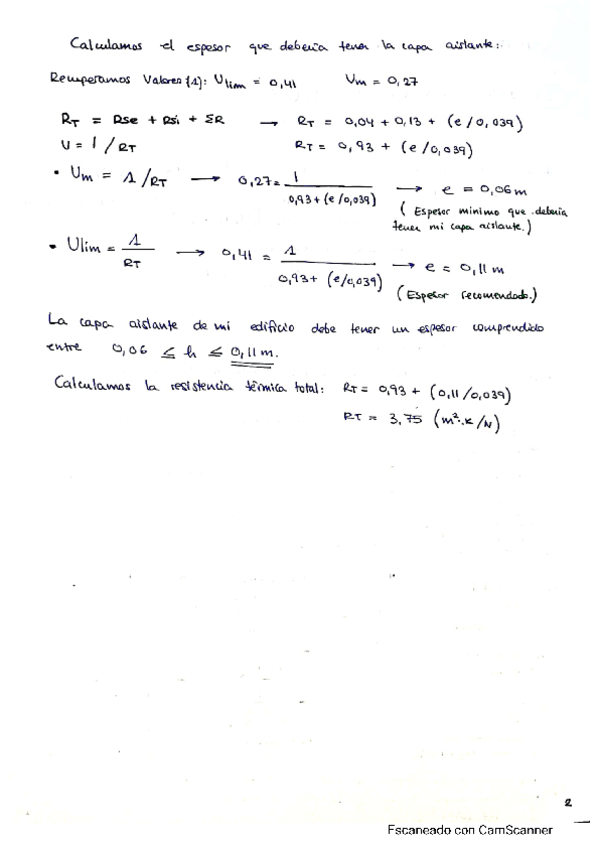 Calculamos el espesor que debería tener la capa aislante:
Recuperamos Valores (1): Ulim = 0,41 Um = 0,27
RT = Rse + Rsi + ΣR → RT = 0,04 + 0,13 + (e/0,039)
U = 1 / RT RT = 0,93 + (e/0,039)
• Um = 1/RT → 0,27 = 1 / 0,93 + (e/0,039) → e = 0,06 m
( Espesor mínimo que debería
tener mi capa aislante.)
• Ulim = 1 / RT → 0,41 = 1 / 0,93 + (e/0,039) → e = 0,11 m
(Espesor recomendado.)
La capa aislante de mi edificio debe tener un espesor comprendido
entre 0,06 ≤ h ≤ 0,11 m.
Calculamos la resistencia térmica total: RT = 0,93 + (0,11/0,039)
RT = 3,75 (m²·K/W)
2
Escaneado con CamScanner